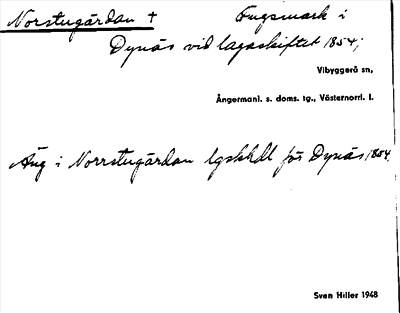 Norstugårdan + Ängsmark i
Dynäs vid lagaskiftet 1854;
Vibyggerå sn,
Ångermanl. s. doms. tg., Västernorrl. l.
Äng i Norrstugårdan lgskhdl för Dynäs 1854.
Sven Hiller 1948